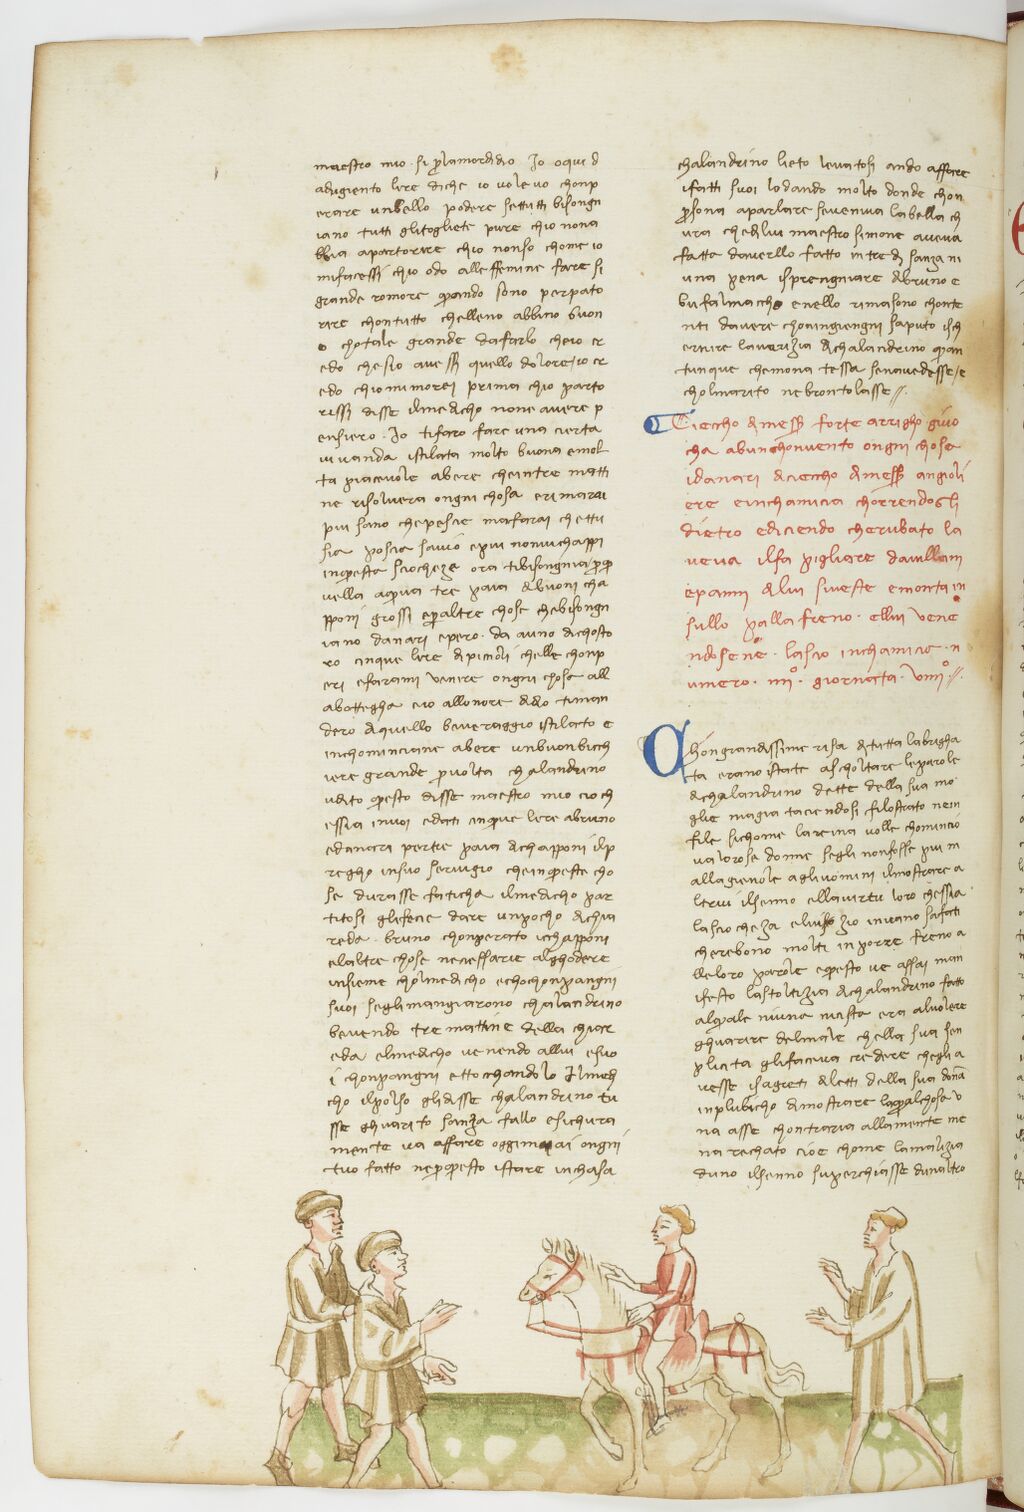 maestro mio · si p lamordidio Jo o qui d
adugiento lire diche io volevo chonp
erare unbello podere settutti bisongn
iano tutti glitogliete pure chio nona
bbia apartorire chio nonso chome io
mifacessi chio odo alleffemine fare si
grande romore quando sono perpato
rire chontutto chelleno abbino buon
o chotale grande dafarlo cheio cr
edo chesio avessi quello dolore io cr
edo chiomimorei prima chio parto
rissi disse ilmedicho none avere p
ensiero · Jo tifaro fare una cierta
vivanda istilata molto buona emol
ta piacevole abere cheintre matti
ne risolvera ongni chosa erimarai
piu sano chepescie mafarai chettu
sia poscia savio epiu nonvichappi
inqueste sciocheze ora tibisongnia p q
uella aqua tre paia dibuoni cha
pponi grossi eperaltre chose chebisongn
iano danari epero · da auno dichosto
ro cinque lire dipicioli chelle chonp
eri efarami venire ongni chosa all
abottegha eio allonore didio timan
dero diquello beveraggio istilato e
inchominciane abere unbuonbicch
iere grande pervolta chalandrino
udito questo disse maestro mio cioch
essia invoi edati cinque lire abruno
edanari pertre paia dichapponi ilp
regho insuo servigio cheinqueste cho
se durasse faticha ilmedicho par
titosi glifecie dare unpocho dichia
reda · bruno chonperato ichapponi
elaltre chose neciessarie alghodere
insieme cholmedicho echochonpangni
suoi seglimangiarono chalandrino
bevendo tre mattine della chiar
eda elmedicho venendo allui esuo
i chonpangni ettocchandolo Ilmed
cho ilpolso glidisse chalandrino tu
sse ghuarito sanza fallo esichura
mente va affare oggimai ongni
tuo fatto neperquesto istare inchasa
chalandrino lieto levatosi ando affare
ifatti suoi lodando molto donde chon
psona aparlare saveniva labella ch
ura chedilui maestro simone aveva
fatta daverllo fatto intre di sanza ni
una pena ispregniare dibruno e
bufalmaccho enello rimasono chonte
nti davere choningiengni saputo isch
ernire lavarizia dichalandrino quan
tunque chemona tessa senavedesse e
cholmarito nebrontolasse
Ciecho dimesser forte arrigho giuo
cha abunchonvento ongni chosa
idanari diciecho dimesser angioli
ere einchamicia chorrendogli
dietro ediciendo cherubato la
veva ilfa pigliare davillani
epanni dilui siveste emonta in
sullo pallafreno · ellui vene
ndosene · lascio inchamicia · n
umero · iiij° · giornata · viiij°
Chongrandissime risa ditutta labrigha
ta erano istate ascholtare leparole
dichalandrino dette della sua mo
glie magia taciendosi filostrato nein
file sichome lareina volle chomincio
valorose donne segli nonfosse piu m
allagievole agliuomini ilmostrare a
ltrui ilsenno ellavirtu loro chessia
lasciocheza elvizio invano safati
cherebono molti inporre freno a
lleloro parole equesto ve assai man
ifesto lastoltizia dichalandrino fatto
alquale niuna ciesta era alvolere
ghuarire delmale chella sua sen
plicita glifaceva credere chegli a
vesse isagreti diletti della sua donna
inplubicho dimostrare laqualchosa v
na asse chontraria allamente me
na rechato cioe chome lamalizia
duno ilsenno superchiasse dunaltro